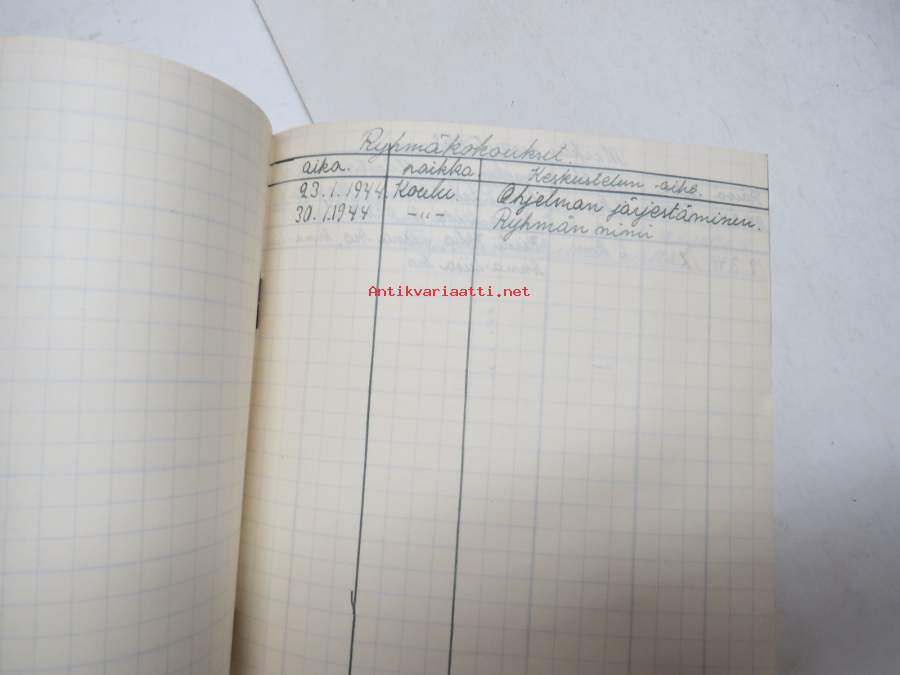 Ryhmäkokoukset.
aika. paikka Keskustelun aihe.
23.1.1944. Koulu. Ohjelman järjestäminen.
30.1.1944 -"- Ryhmän nimi
Antikvariaatti.net